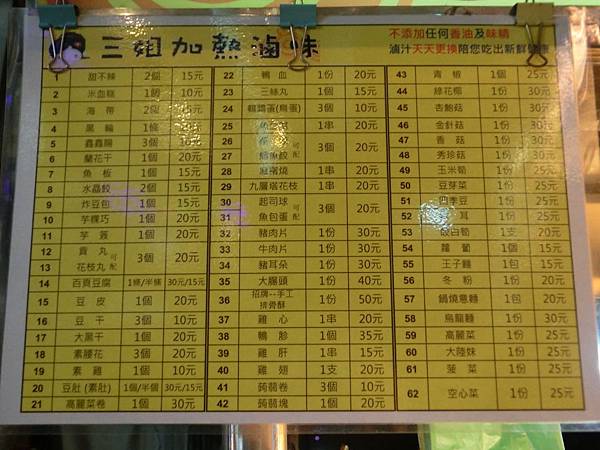 三姐加熱滷味
不添加任何香油及味精
滷汁天天更換陪您吃出新鮮健康
甜不辣 2個 15元
2 米血糕 1個 10元
3 海帶 2個 15元
4 黑輪 1條
5 鑫鑫腸 3個 10元
6 蘭花干 1個 20元
7 魚板 1個 15元
8 水晶餃 2個 15元
9 炸豆包 1個 15元
10 芋粿巧 1個 20元
11 芋簽 1個 20元
12 貢丸
13 花枝丸 可配 3個 20元
14 百頁豆腐 1條/半條 30元/15元
15 豆皮 1個 20元
16 豆干 3個 10元
17 大黑干 1個 20元
18 素腰花 3個 20元
19 素雞 1個 10元
20 豆肚(素肚) 1個/半個 30元/15元
21 高麗菜卷 1個 30元
22 鴨血 1份 20元
23 三絲丸 1個 10元
24 鵪鶉蛋(鳥蛋) 3個 10元
25 1串 20元
26
27 魚餃 可配 3個 20元
28 1串 20元
29 九層塔花枝 1串 20元
30 起司球
31 魚包蛋 可配 3個 20元
32 豬肉片 1份 30元
33 牛肉片 1份 30元
34 豬耳朵 1份 30元
35 大腸頭 1份 40元
36 招牌--手工排骨酥 1份 50元
37 雞心 1串 20元
38 鴨胗 1個 35元
39 雞肝 1串 15元
40 雞翅 1支 20元
41 蒟蒻卷 3個 10元
42 蒟蒻塊 1個 20元
43 青椒 1個 25元
44 綠花椰 1份 30元
45 杏鮑菇 1份 30元
46 金針菇 1份 30元
47 香菇 1份 30元
48 秀珍菇 1份 30元
49 玉米筍 1份 25元
50 豆芽菜 1份 25元
51 四季豆 1份 25元
52 耳 1份 25元
53 筊白筍 1支 20元
54 蘿蔔 1個 15元
55 王子麵 1包 15元
56 冬粉 1份 20元
57 鍋燒意麵 1包 20元
58 烏龍麵 1份 30元
59 高麗菜 1份 25元
60 大陸妹 1份 25元
61 菠菜 1份 25元
62 空心菜 1份 25元